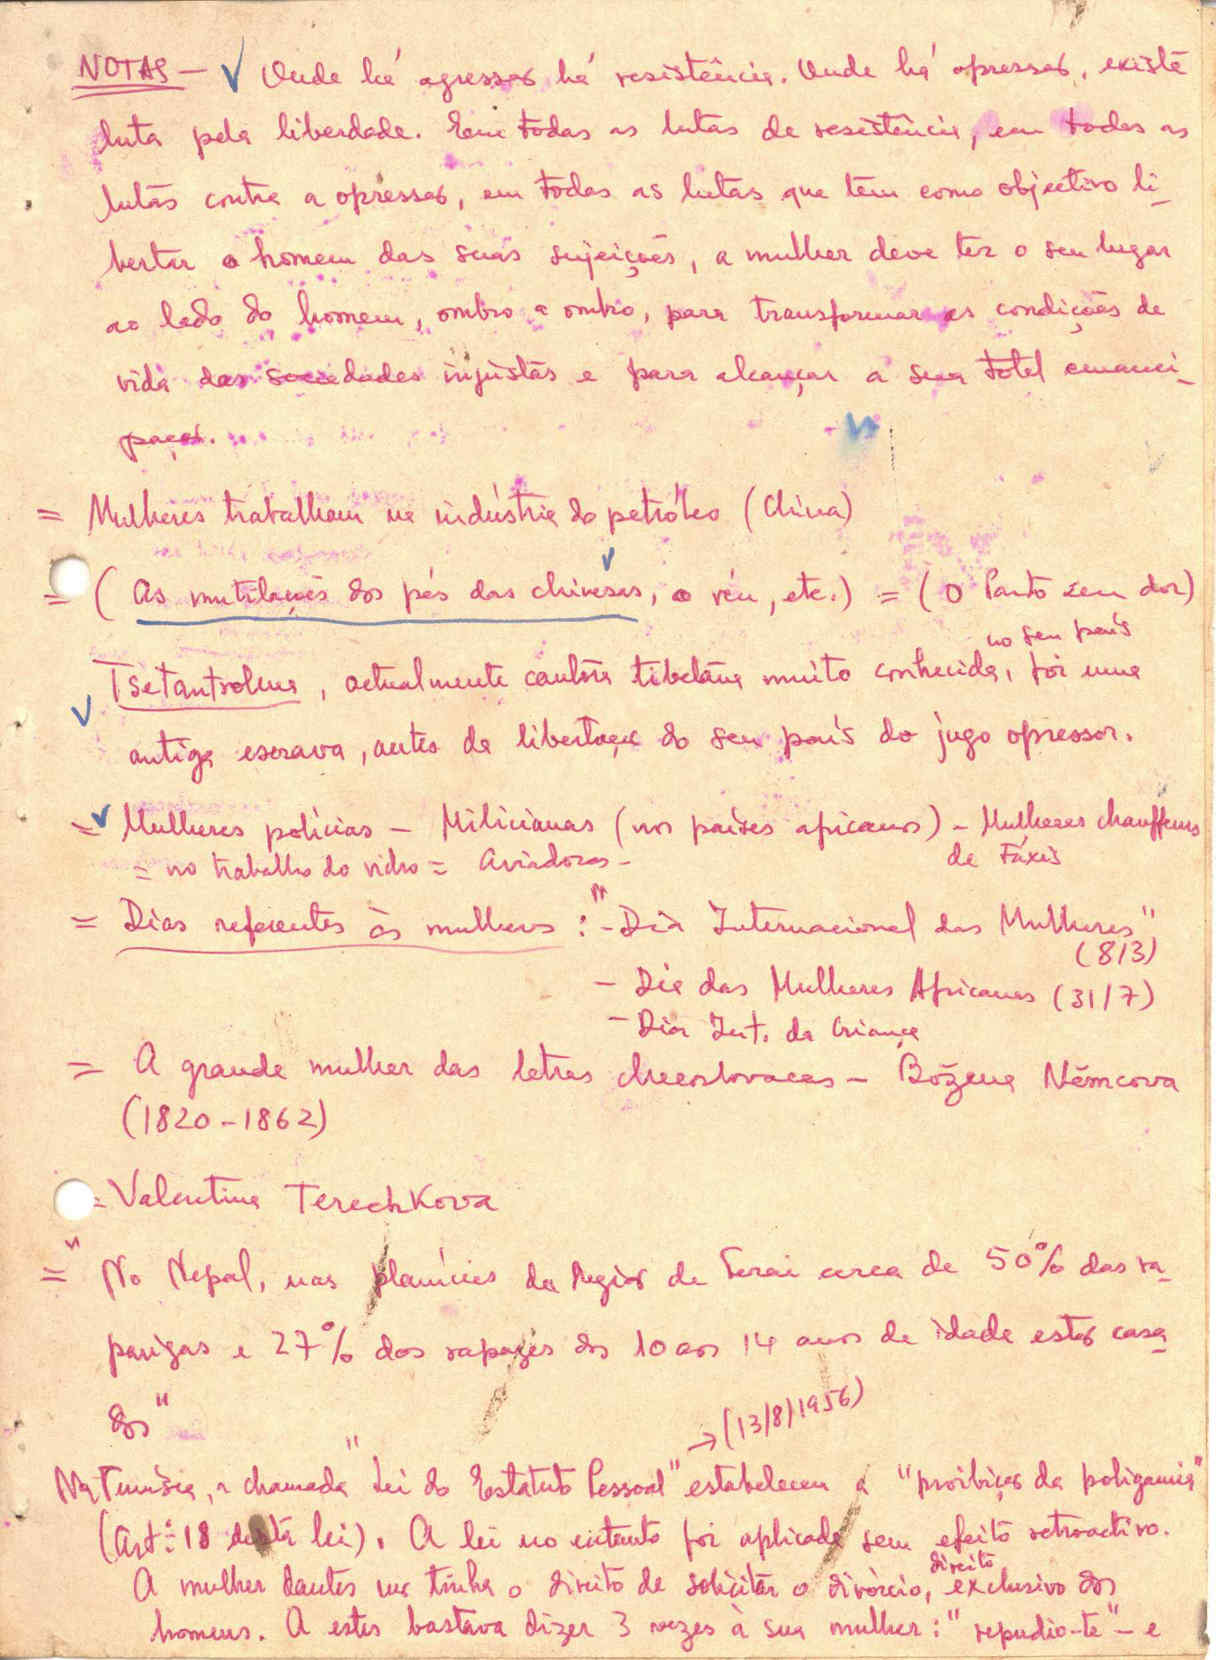 NOTAS - Onde há agressão há resistência. Onde há opressão, existe
luta pela liberdade. Em todas as lutas de resistência, em todas as
lutas contra a opressão, em todas as lutas que têm como objectivo li-
bertar o homem das suas sujeições, a mulher deve ter o seu lugar
ao lado do homem, ombro a ombro, para transformar as condições de
vida das sociedades injustas e para alcançar a sua total emanci-
pação.
= Mulheres trabalham na indústria do petróleo (China)
= (As mutilações dos pés das chinesas, o véu, etc.) = (O Parto sem dor)
no seu país
Tsetantrolma, actualmente cantora tibetana muito conhecida, foi uma
antiga escrava, antes da libertação do seu país do jugo opressor.
= Mulheres polícias - Milicianas (nos países africanos) - Mulheres chauffeurs
= no trabalho do vidro = Aviadoras - de Táxis
= Dias referentes às mulheres: "- Dia Internacional das Mulheres"
(8/3)
- Dia das Mulheres Africanas (31/7)
- Dia Int. da Criança
= A grande mulher das letras checoslovacas - Bózena Némcova
(1820-1862)
= Valentina Terechkova
= " No Nepal, nas planícies da Região de Terai cerca de 50% das ra-
parigas e 27% dos rapazes dos 10 aos 14 anos de idade estão casa-
dos"
→ (13/8/1956)
Na Tunísia, a chamada "Lei do Estatuto Pessoal" estabeleceu a "proibição da poligamia"
(Artº 18 desta lei). A lei no entanto foi aplicada sem efeito retroactivo.
direito
A mulher dantes não tinha o direito de solicitar o divórcio, exclusivo dos
homens. A estes bastava dizer 3 vezes à sua mulher: "repudio-te" - e